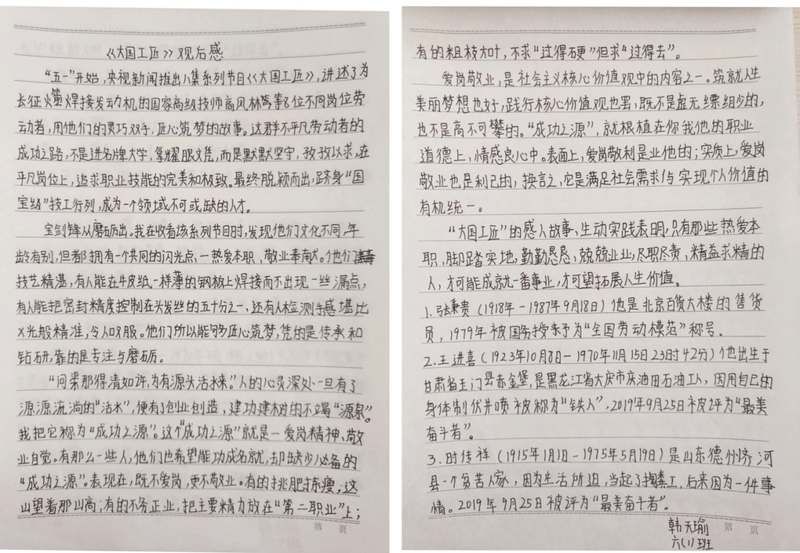 《大国工匠》观后感
"五一"开始,央视新闻推出八集系列节目《大国工匠》,讲述了为
长征火箭焊接发动机的国家高级技师高凤林等8位不同岗位劳
动者,用他们的灵巧双手,匠心筑梦的故事。这群不平凡劳动者的
成功之路,不是进名牌大学,拿耀眼文凭,而是默默坚守,孜孜以求,在
平凡岗位上,追求职业技能的完美和极致。最终脱颖而出,跻身"国
宝级"技工行列,成为一个领域不可或缺的人才。
宝剑锋从磨砺出。我在收看该系列节目时,发现他们文化不同,年
龄有别,但都拥有一个共同的闪光点—热爱本职、敬业奉献。他们
技艺精湛,有人能在牛皮纸一样薄的钢板上焊接而不出现一些漏点,
有人能把密封精度控制在头发丝的五十分之一,还有人检测手感堪比
X光般精准,令人叹服。他们所以能够匠心筑梦,凭的是传承和
钻研,靠的是专注与磨砺。
"问渠那得清如许,为有源头活水来。"人的心灵深处一旦有了
源源流淌的"活水",便有了创业创造,建功建树的不竭"源泉"。
我把它称为"成功之源"。这个"成功之源"就是一爱岗精神、敬
业自觉。有那么一些人,他们也希望能功成名就,却缺少必备的
"成功之源"。表现在,既不爱岗,更不敬业。有的挑肥拣瘦,这
山望着那山高;有的不务正业,把主要精力放在"第二职业"上;
有的粗枝大叶,不求"过得硬"但求"过得去"。
爱岗敬业,是社会主义核心价值观中的内容之一。筑就人生
美丽梦想也好,践行核心价值观也罢,既不是虚无缥缈的,
也不是高不可攀的。"成功之源",就根植在你我他的职业
道德上,情感良心中。表面上,爱岗敬利是业他的;实际上,爱岗
敬业也是利己的,换言之,它是满足社会需求与实现个人价值的
有机统一。
"大国工匠"的感人故事、生动实践表明,只有那些热爱本
职,脚踏实地,勤勤恳恳,兢兢业业,尽职尽责,精益求精的
人,才可能成就一番事业,才可望拓展人生价值。
1.张秉贵(1918年-1987年9月18日)他是北京百货大楼的售货
员,1979年被国务授予为"全国劳动模范"称号。
2.王进喜(1923年10月8日-1970年11月15日23时42分)他出生于
甘肃省玉门县赤金堡,是黑龙江省大庆市大庆油田石油工人,因用自己的
身体制伏井喷被称为"铁人",2019年9月25日被评为"最美
奋斗者"。
3.时传祥(1915年1月1日-1975年5月19日)是山东德州齐河
县一个贫苦人家,因为生活所迫,当起了掏粪工,后来因为一件事
情。2019年9月25日被评为"最美奋斗者"。
韩天瑜
六(1)班
第 页
第 页